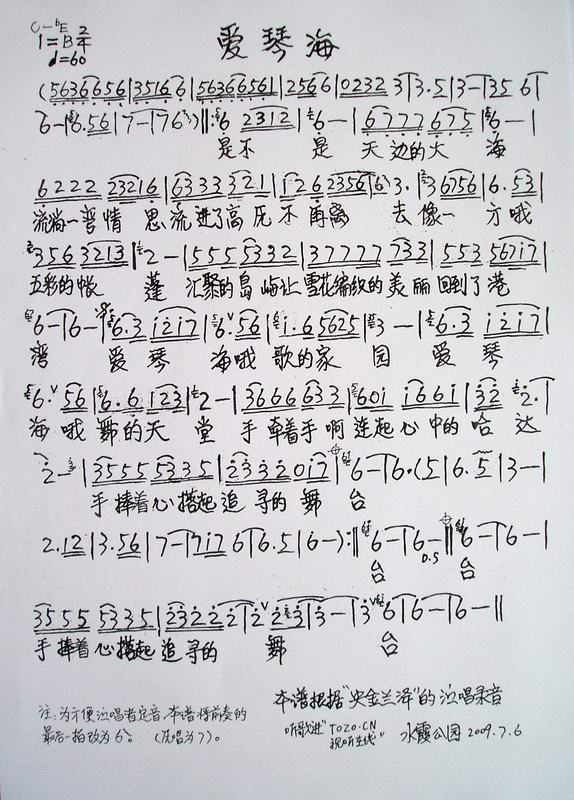 爱琴海
C-bE 2/4
1=B
d=60
(5636656|35166|56366561|2566|0232 3|3.5|3-|35 6|
6-|6.56|7-|76)‖:6 2312|6-|6777 675|6-|
是不 是 天边的大 海
6222 23216|6333 321|126 2356|6 3.|36756|6.53|
流淌一弯情 思流进了高 不 再离 去 像一 方哦
3563213|2-|5555332|37777 733|553 56717|
五彩的帐 蓬 汇聚的岛屿让雪花编织的美丽回到了港
6-|6-|6.3 1217|6.56|1.6 5625|3-|6.3 1217|
湾 爱琴 海哦歌的家 园 爱琴
6.56|6.6 123|2-|3666 633|601 1661|32 2.|
海哦舞的天 堂 手牵着手啊连起心中的哈 达
2-|3555 5335|2332017|6-|6.(5|6.5|3-|
手捧着心搭起追寻的舞 台
2.12|3.56|7-|717 6|6.5|6-):‖6-|6-‖6-|6-|
0.5
台 台
3555 5335|23222|2 23|3-|3 6|6-|6-‖
手捧着心搭起追寻的 舞 台
本谱根据"央金兰泽"的演唱录音
注:为方便演唱者定音,本谱将前奏的
听歌进"TOZO.CN
最后一拍改为6。 (原唱为7)。
视听在线"
水霞公园 2009.7.6